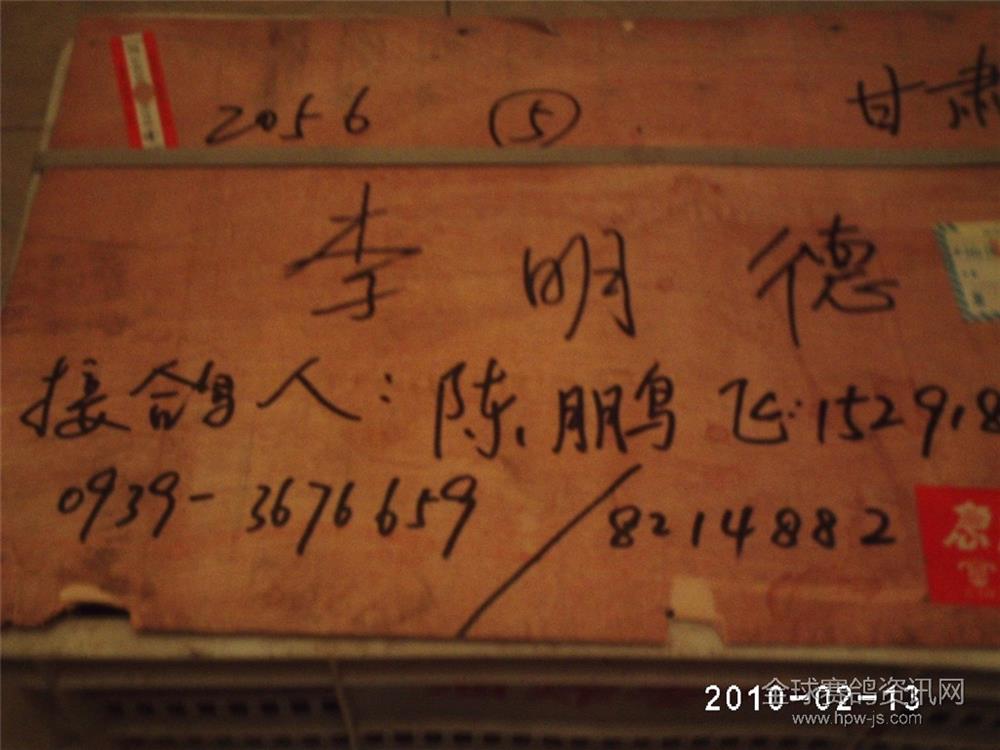 2056 ⑤ 甘肃
李明德
接鸽人:陈鹏飞:152918
0939-3676659/8214882
急
2010-02-13
全球赛鸽资讯网
www.hpw-js.com